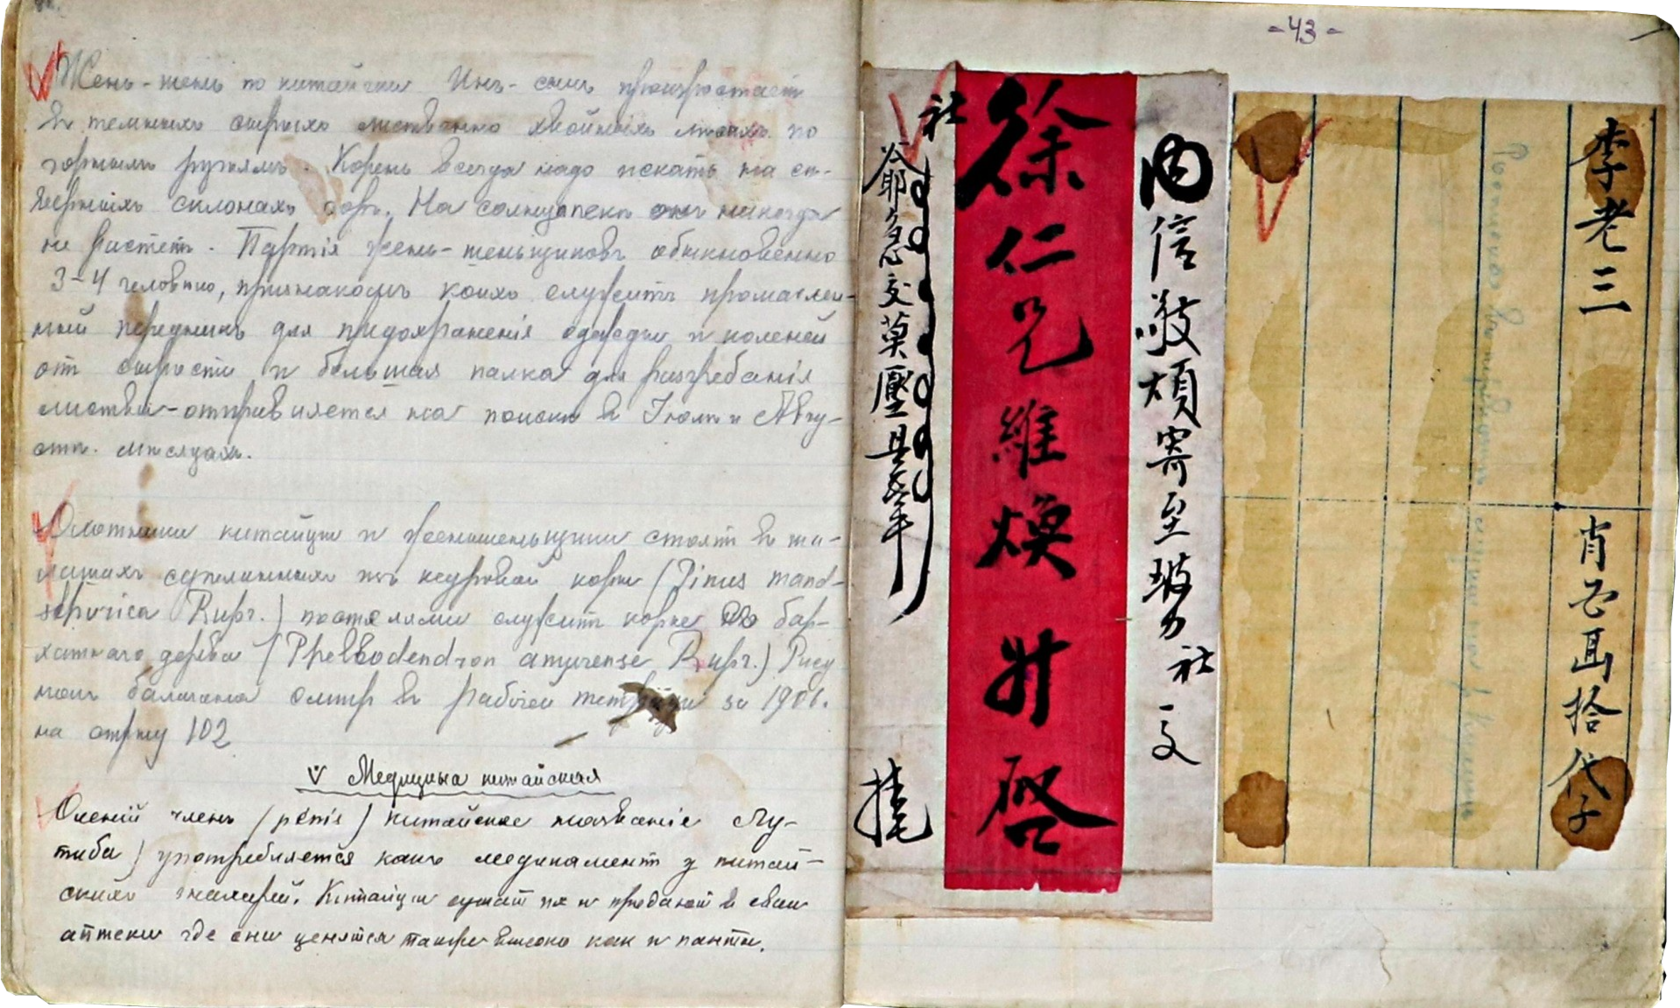 Жень-шень по китайски Инъ-сыпъ произростаетъ
въ темныхъ сырыхъ лиственно хвойныхъ лѣсахъ по
горнымъ кряжамъ. Корень всегда надо искать на сѣ-
верныхъ склонахъ горъ. На солнцопекѣ онъ никогда
не растетъ. Партія жень-шеньщиковъ обыкновенно
3-4 человѣка, признакомъ коихъ служитъ промаслен-
ный передникъ для предохраненія одежды и коленей
отъ сырости и большая палка для разгребанія
листвы-отправляется на поиски въ Іюлѣ и Авгу-
стѣ мѣсяцахъ.
Охотники китайцы и женьшеньщики спятъ въ ша-
лашахъ сдѣланныхъ изъ кедровой коры (Pinus mand-
schurica Rupr.) постелями служитъ корье бар-
хатнаго дерева (Phellodendron amurense Rupr.) Рису
нокъ балагана смтр въ рабочей тетради за 1906.
на стрцу 102
V Медицина китайская
Оленій членъ (penis) китайское названіе Лу-
тиба) употребляется какъ медикаментъ у китай-
скихъ знахарей. Китайцы сушатъ их и продаютъ в свои
аптеки где они ценятся также высоко как и панты.
-43-
李老三
肖 拾代子
內信敬煩寄至 社 交
徐仁兄維煥 升 啓
社
爺 急交莫壓